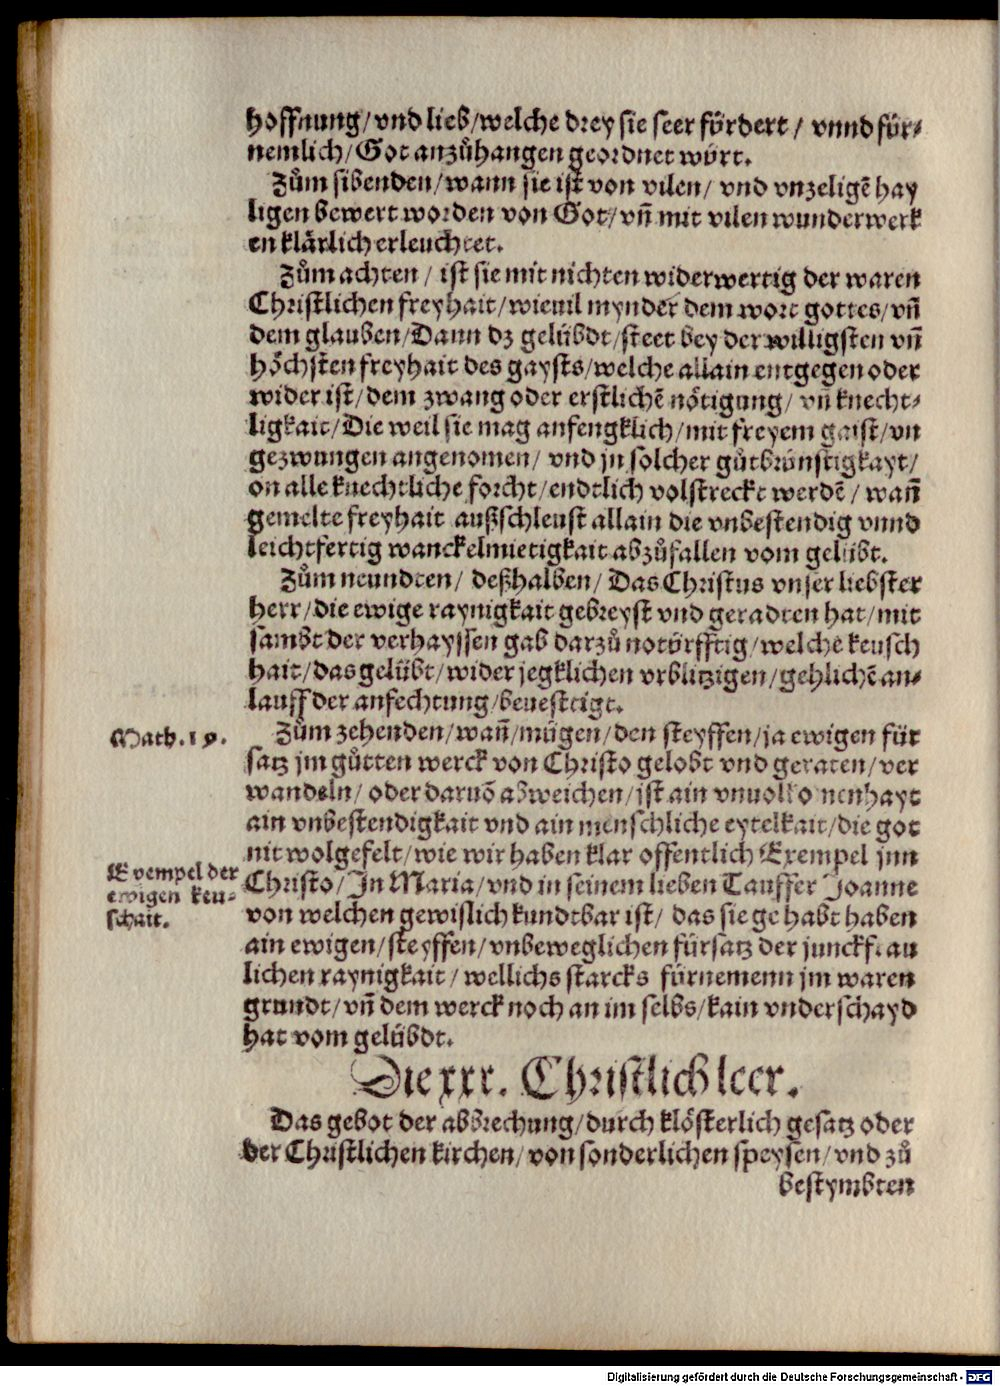 hoffnung/vnd lieb/welche drey sie seer fördert/ vnnd für-
nemlich/Got anzůhangen geordnet wört.
Zům sibenden/wann sie ist von vilen/ vnd vnzeligē hay
ligen bewert worden von Got/vn̄ mit vilen wunderwerk
en klärlich erleuchtet.
Zům achten/ ist sie mit nichten widerwertig der waren
Christlichen freyhait/wieuil mynder dem wort gottes/vn̄
dem glauben/Dann dz gelübdt/steet bey der willigsten vn̄
höchsten freyhait des gaysts/welche allain entgegen oder
wider ist/dem zwang oder erstlichē nötigung/ vn̄ knecht-
ligkait/Die weil sie mag anfengklich/mit freyem gaist/vn
gezwungen angenomen/ vnd jn solcher gůtbrünstigkayt/
on alle knechtliche forcht/endtlich volstreckt werdē/ wan̄
gemelte freyhait außschleust allain die vnbestendig vnnd
leichtfertig wanckelmietigkait abzůfallen vom gelübt.
Zům neundten/ deßhalben/ Das Christus vnser liebster
herr/die ewige raynigkait gebreyst vnd geradten hat/mit
sambt der verhayssen gab darzů notürfftig/welche keusch
hait/das gelübt/wider jegklichen vrblitzigen/gehlichē an-
lauff der anfechtung/beuestigt.
Math. 19.
Zům zehenden/wan̄/mügen/den steyffen/ja ewigen für
satz jm gůtten werck von Christo gelobt vnd geraten/ver
wandeln/ oder daruō abweichen/ist ain vnuolkomenhayt
ain vnbestendigkait vnd ain menschliche eytelkait/die got
nit wolgefelt/wie wir haben klar offentlich Exempel jnn
Exempel der
ewigen keu-
schait.
Christo/In Maria/vnd in seinem lieben Tauffer Joanne
von welchen gewislich kundtbar ist/ das sie gehabt haben
ain ewigen/steyffen/vnbeweglichen fürsatz der junckfrau
lichen raynigkait/ wellichs starcks fürnemenn jm waren
grundt/vn̄ dem werck noch an im selbs/kain vnderschayd
hat vom gelübdt.
Die xxx. Christlich leer.
Das gebot der abbrechung/durch klösterlich gesatz oder
der Christlichen kirchen/von sonderlichen speysen/vnd zů
bestymbten
Digitalisierung gefördert durch die Deutsche Forschungsgemeinschaft - DFG